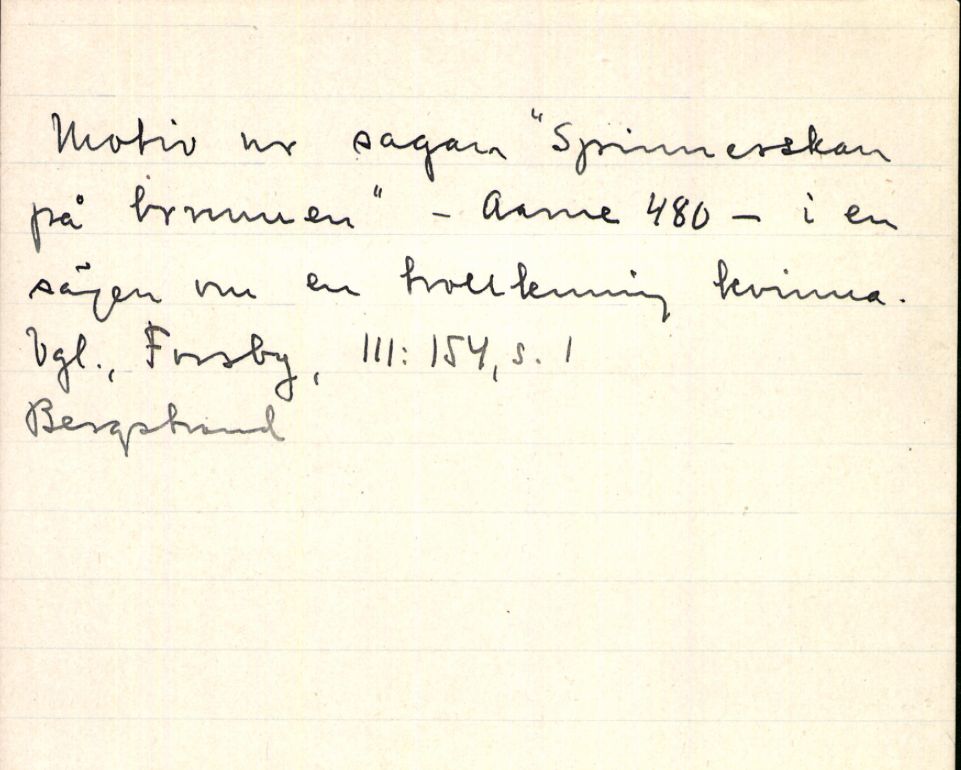 Motiv ur sagan "Spinnerskan
på brunnen" - Aarne 480 - i en
sägen om en trollkunnig kvinna.
Vgl., Forsby, III: 154, s. 1
Bergstrand